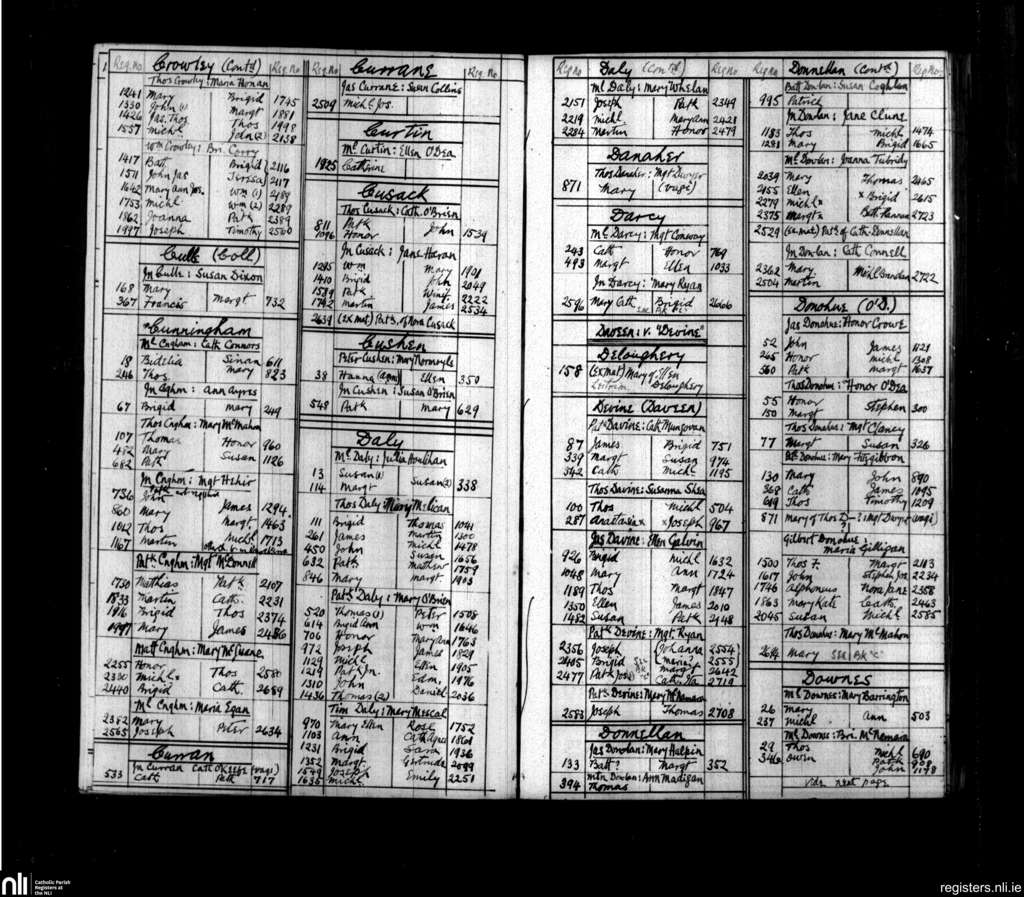 Reg. No
Crowley (Contd)
Reg. No
Thos Crowley: Maria Honan
1241 Mary Brigid 1745
1330 John (1) Margt 1881
1426 Jas. Thos Thos 1998
1557 Michl John (2) 2138
Wm Crowley: Bri. Corry
1417 Batt Brigid 2116
1511 John Jas Teresa 2117
1642 Mary Ann Jos. Wm (1) 2189
1753 Michl Wm (2) 2289
1862 Joanna Patk 2389
1997 Joseph Timothy 2500
Cull (Coll)
Jn Cull: Susan Dixon
168 Mary
367 Francis Margt 732
Cunningham
Ml Cnghm: Cath Connors
18 Bidelia Sinan 611
246 Thos Mary 823
Jn Cnghm: Ann Ayres
67 Brigid Mary 249
Thos Cnghm: Mary McMahon
107 Thomas Honor 960
482 Mary Susan 1126
682 Patk
Jn Cnghm: Mgt Hehir
736 John
860 Mary James 1294
1012 Thos Margt 1463
1167 Martin Michl 1713
Patk Cnghm: Mgt McDonnell
1730 Mathias Patk 2107
1833 Martin Cath. 2231
1916 Brigid Thos 2374
1997 Mary James 2486
Matt Cnghm: Mary McGuane
2255 Honor Thos 2580
Michl Cath. 2689
2440 Brigid
Ml Cnghm: Maria Egan
2382 Mary Peter 2634
2565 Joseph
Curran
Jn Curran Cath O'Keefe (vagi)
533 Cath Patk 717
Reg. No
Currane
Reg. No
Jas Currane: Susan Collins
2509 Michl Jos.
Curtin
Ml Curtin: Ellen O'Dea
1925 Catherine
Cusack
Thos Cusack: Cath. O'Brien
811 Patk John 1539
1096 Honor
Jn Cusack: Jane Haran
1295 Wm Mary 1901
1410 Brigid John 2049
1579 Patk Winif. 2222
1792 Martin James 2534
2639 (ex mat) Pat's, of Nora Cusack
Cushen
Peter Cushen: Mary Normoyle
38 Hanna Ellen 350
Jn Cushen: Susan O'Brien
548 Patk Mary 629
Daly
Ml Daly: Julia Houlihan
13 Susan (1) Susan (2) 338
114 Margt
Thos Daly Mary Melican
111 Brigid Thomas 1041
261 James Martin 1300
450 John Michl 1478
632 Patk Susan 1656
846 Mary Mathew 1759
Margt. 1903
Patk Daly: Mary O'Brien
520 Thomas (1) Peter 1508
614 Brigid Ann Wm 1646
706 Honor Mary Ann 1763
972 Joseph James 1829
1129 Michl Ellen 1905
1219 Patk Jn. Edm. 1976
1310 John Daniel 2036
1436 Thomas (2)
Tim Daly: Mary Mescal
970 Mary Ellen Rose 1752
1103 Ann Cath Agnes 1861
1231 Brigid Sara 1936
1352 Margt Gertrude 2099
1549 Joseph Emily 2251
1635 Michl
Reg No
Daly (Contd)
Reg No
Ml Daly: Mary Whelan
2151 Joseph Patk 2349
2219 Michl Mary Ann 2421
2284 Martin Honor 2479
Danaher
Thos Danaher: Mgt Dwyer
871 Mary (vagi)
Darcy
Ml Darcy: Mgt Conway
243 Cath Honor 769
493 Margt Ellen 1033
Jn Darcy: Mary Ryan
2596 Mary Cath. Brigid 2666
Daveen: v. "Devine"
Deloughery
158 (ex mat) Mary of Ellen
Deloughery
Devine (Daveen)
Patk Davine: Cath Mungovan
87 James Brigid 751
339 Margt Susan 974
542 Cath Michl 1195
Thos Davine: Susanna Shea
100 Thos Michl 504
287 Anastasia x x Joseph 967
Jas Davine: Ellen Galvin
926 Brigid Michl 1632
1048 Mary Ann 1724
1189 Thos Margt 1847
1350 Ellen James 2010
1482 Susan Patk 2148
Patk Devine: Mgt. Ryan
2356 Joseph Johanna 2554
2405 Brigid Maria 2555
2477 Patk Margt 2642
2719
Patk Devine: Mary McNamara
2583 Joseph Thomas 2708
Donnellan
Jas Donnlan: Mary Halpin
133 Batt? Margt 352
Mtn Donlan: Ann Madigan
394 Thomas
Reg No
Donnellan (Contd)
Reg Nos
Batt Donlan: Susan Coghlan
995 Patrick
Jn Donlan: Jane Clune
1183 Thos Michl 1474
1281 Mary Brigid 1665
Ml Donlan: Joanna Tubridy
2039 Mary Thomas 2465
2155 Ellen x Brigid 2615
2279 Michl x
2375 Margt x 2723
2529 (ex mat) Pat's of Cath. Donnellan
Jn Donlan: Cath Connell
2362 Mary Michl Brendan 2722
2504 Martin
Donohue (O'D.)
Jas Donohue: Honor Crowe
52 John James 1121
265 Honor Michl 1308
560 Patk Margt 1637
Thos Donohue: Honor O'Dea
55 Honor Stephen 300
150 Margt
Thos Donohue: Mgt Clancy
77 Margt Susan 326
Patk Donohue: Mary Fitzgibbon
130 Mary John 890
368 Cath James 1095
619 Thos Timothy 1209
871 Mary of Thos D—?: Mgt Dwyer (vagi)
Gilbert Donohue:
Maria Gilligan
1500 Thos F. Margt 2113
1617 John Stephen Jos. 2234
1746 Alphonsus Nora Jane 2358
1863 Mary Kate Cath. 2463
2045 Susan Michl 2585
Thos Donohue: Mary McMahon
2614 Mary See Bk "C"
Downes
Ml Downes: Mary Barrington
26 Mary Ann 503
237 Michl
Ml Downes: Bri. McNamara
29 Thos Michl 690
546 Owen Patk 908
John 1178
Vide next page
nli
Catholic Parish
Registers at
the NLI
registers.nli.ie